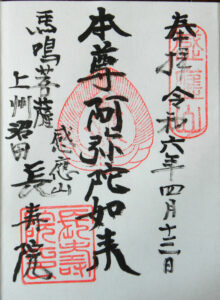 奉拝 令和六年四月十三日
本尊 阿弥陀如来
馬鳴菩薩
感応山
上州沼田 長寿院